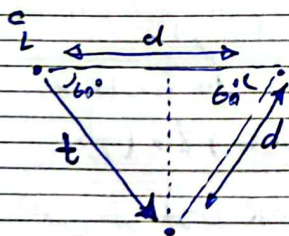 C
L
d
60°
60°
t
d